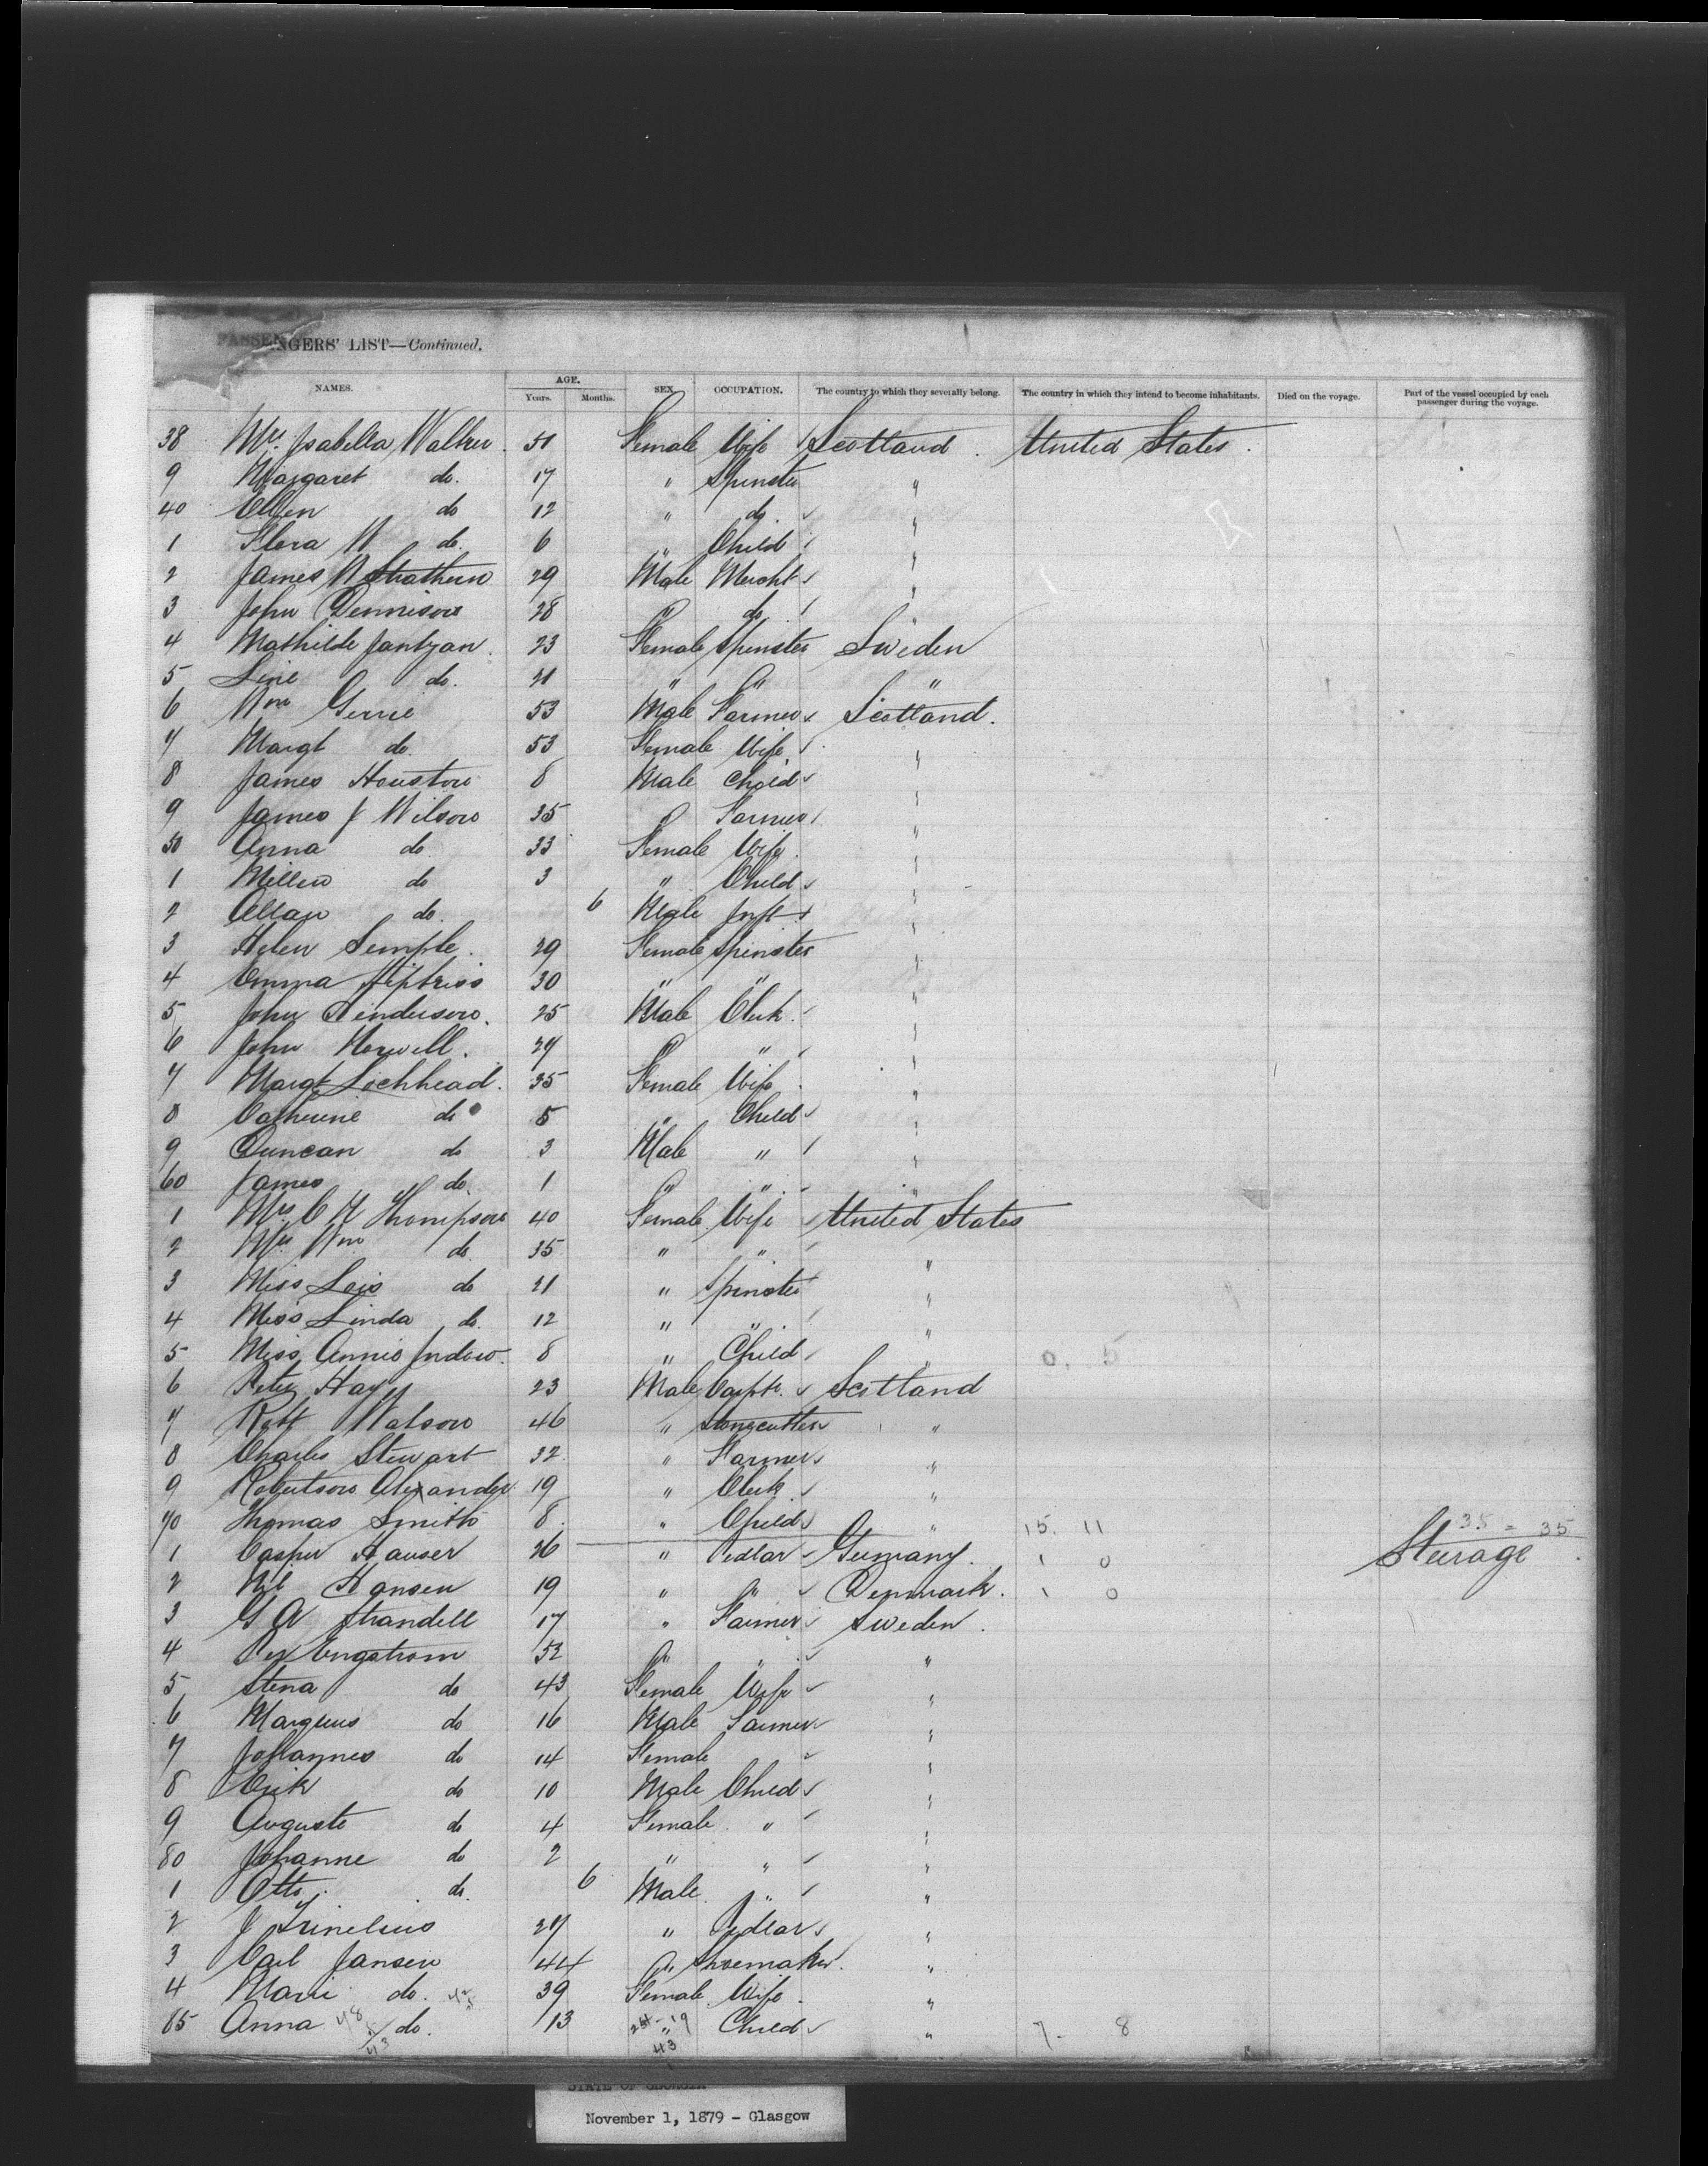 PASSENGERS' LIST—Continued.
NAMES. AGE. SEX. OCCUPATION. The country to which they severally belong. The country in which they intend to become inhabitants. Died on the voyage. Part of the vessel occupied by each passenger during the voyage.
Years. Months.
38 Mrs. Isabella Walker 51 Female Wife Scotland. United States.
9 Margaret do. 17 " Spinster "
40 Ellen do 12 " do. "
1 Flora W do. 6 " Child "
2 James W Strathern 29 Male Mercht "
3 John Dennison 28 " do "
4 Mathilde Jantzan. 23 Female Spinster Sweden
5 Line do. 21 " " "
6 Wm Gerrie 53 Male Farmer Scotland.
7 Margt do 53 Female Wife "
8 James Houston 8 Male Child "
9 James J Wilson 35 " Farmer "
50 Anna do 33 Female Wife "
1 do 3 " Child "
2 Allan do. 6 Male Inft "
3 Helen Semple. 29 Female Spinster "
4 Emma 30 " " "
5 John Henderson. 25 Male Clerk "
6 John 27 " " "
7 Margt Lochhead. 35 Female Wife "
8 Catherine do 5 " Child "
9 Duncan do 3 Male " "
60 James do. 1 " " "
1 Mrs C H Thompson 40 Female Wife United States
2 Mrs Wm do. 35 " " "
3 Miss Lois do 21 " Spinster "
4 Miss Linda do. 12 " " "
5 Miss Annie 8 " Child " 0. 5
6 Peter Hay 23 Male Carptr. Scotland
7 Robt Watson 46 " Stonecutter "
8 Charles Stewart 32 " Farmer "
9 Robertson Alexander 19 " Clerk "
70 Thomas Smith 8 " Child " 15. 11 35 = 35
1 Casper Hauser 26 " Pedlar Germany. 1 0 Steerage
2 Hansen 19 " " Denmark. 1 0
3 G A Strandell 17 " Farmer Sweden.
4 Per Engstrom 52 " " "
5 Stena do 43 Female Wife "
6 do 16 Male Farmer "
7 Johannes do 14 Female "
8 Erik do 10 Male Child "
9 Auguste do 4 Female " "
80 Johanne do 2 " " "
1 Otto do. 6 Male " "
2 J 27 " Pedlar "
3 Carl Jansen 44 " Shoemaker. "
4 Marie do. 39 Female Wife. "
85 Anna do. 13 " Child " 7. 8
48 43
24 - 19
43
STATE OF GEORGIA
November 1, 1879 - Glasgow